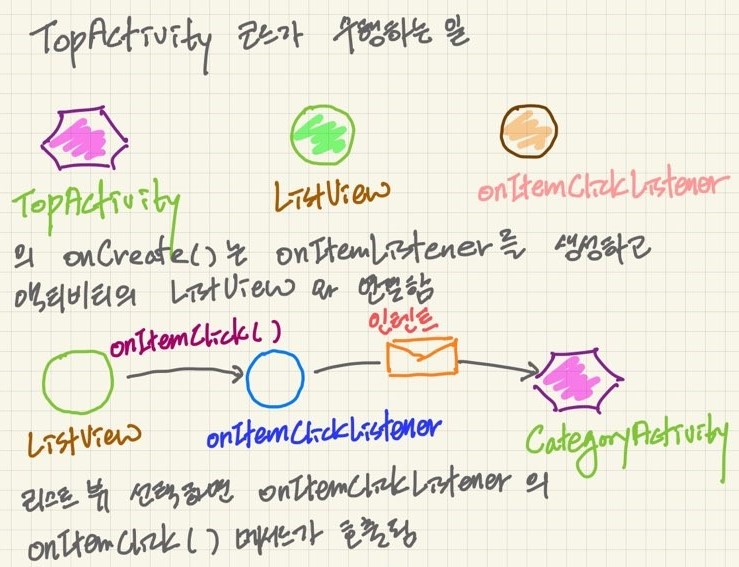 TopActivity 코드가 수행하는 일
TopActivity
ListView
onItemClickListener
의 onCreate()는 onItemListener를 생성하고
액티비티의 ListView 와 연결함
onItemClick()
인텐트
ListView
onItemClickListener
CategoryActivity
리스트 뷰 선택하면 onItemClickListener 의
onItemClick() 메서드가 호출됨